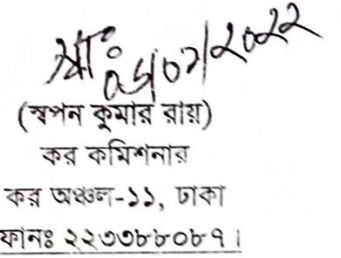 স্বাঃ
(স্বপন কুমার রায়)
কর কমিশনার
কর অঞ্চল-১১, ঢাকা
ফানঃ ২২৩৩৮৮০৮৭।